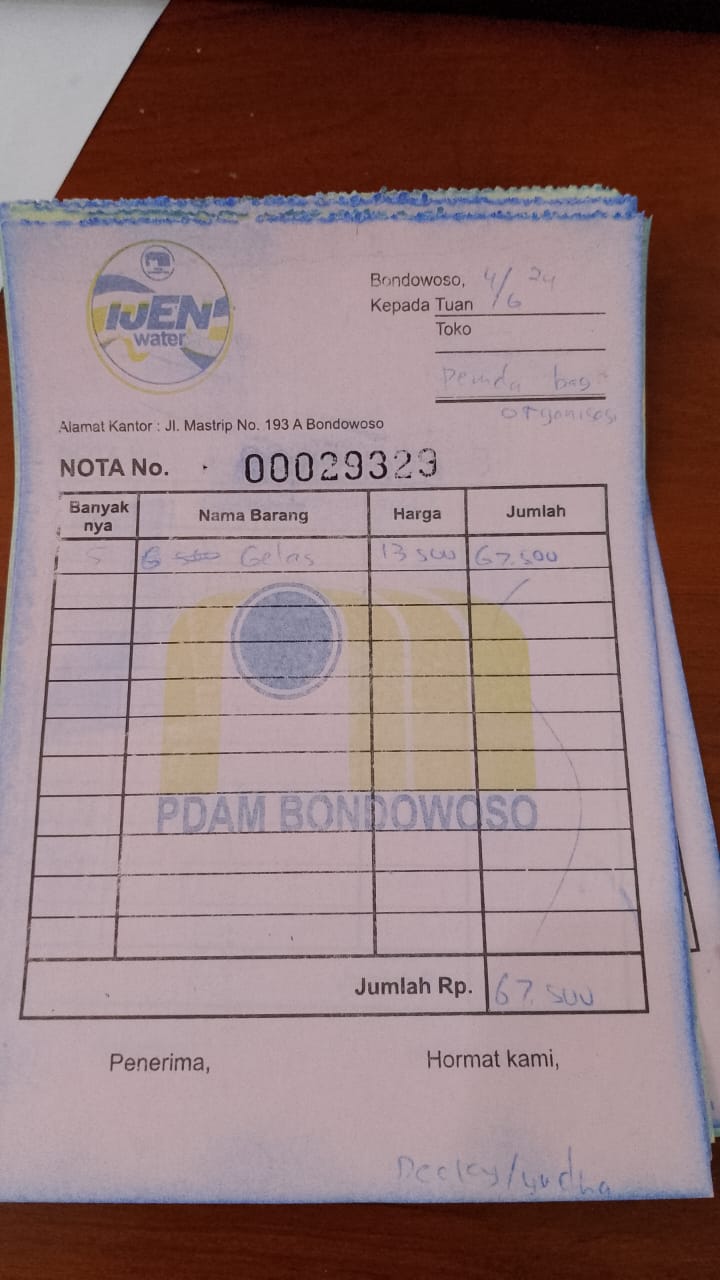 IJEN
water
Bondowoso, 4/6 24
Kepada Tuan
Toko
Pemda bag
organisasi
Alamat Kantor : Jl. Mastrip No. 193 A Bondowoso
NOTA No. 00029329
Banyak nya Nama Barang Harga Jumlah
5 Gelas 13 500 67.500
PDAM BONDOWOSO
Jumlah Rp. 67.500
Penerima, Hormat kami,
/yudha